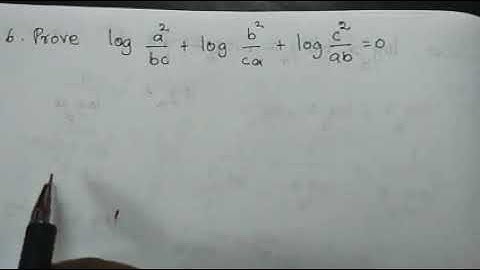 6. Prove log a²/bc + log b²/ca + log c²/ab = 0